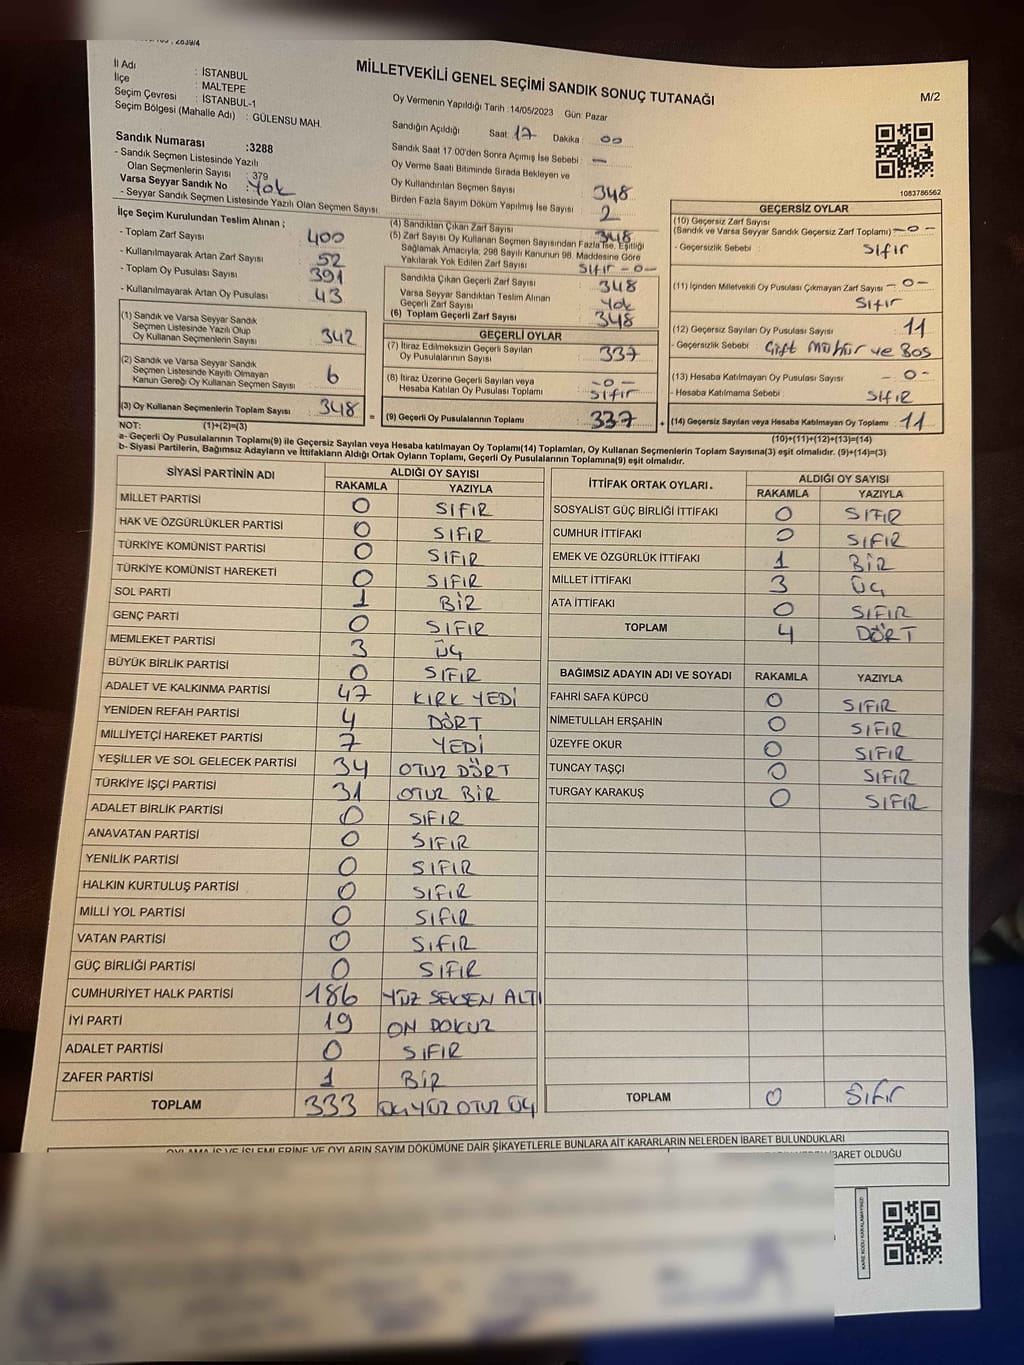 MİLLETVEKİLİ GENEL SEÇİMİ SANDIK SONUÇ TUTANAĞI
M/2
İl Adı : İSTANBUL
İlçe : MALTEPE
Seçim Çevresi : İSTANBUL-1
Seçim Bölgesi (Mahalle Adı) : GÜLENSU MAH.
Sandık Numarası :3288
- Sandık Seçmen Listesinde Yazılı
Olan Seçmenlerin Sayısı : 379
Varsa Seyyar Sandık No : Yok
- Seyyar Sandık Seçmen Listesinde Yazılı Olan Seçmen Sayısı
Oy Vermenin Yapıldığı Tarih :14/05/2023 Gün: Pazar
Sandığın Açıldığı Saat: 17 Dakika : 00
Sandık Saat 17.00'den Sonra Açılmış İse Sebebi : —
Oy Verme Saati Bitiminde Sırada Bekleyen ve
Oy Kullandırılan Seçmen Sayısı 348
Birden Fazla Sayım Döküm Yapılmış İse Sayısı 2
1083786562
İlçe Seçim Kurulundan Teslim Alınan ;
- Toplam Zarf Sayısı 400
- Kullanılmayarak Artan Zarf Sayısı 52
- Toplam Oy Pusulası Sayısı 391
- Kullanılmayarak Artan Oy Pusulası 43
(1) Sandık ve Varsa Seyyar Sandık
Seçmen Listesinde Yazılı Olup
Oy Kullanan Seçmenlerin Sayısı 342
(2) Sandık ve Varsa Seyyar Sandık
Seçmen Listesinde Kayıtlı Olmayan
Kanun Gereği Oy Kullanan Seçmen Sayısı 6
(3) Oy Kullanan Seçmenlerin Toplam Sayısı 348 =
(4) Sandıktan Çıkan Zarf Sayısı 348
(5) Zarf Sayısı Oy Kullanan Seçmen Sayısından Fazla İse, Eşitliği
Sağlamak Amacıyla, 298 Sayılı Kanunun 98. Maddesine Göre
Yakılarak Yok Edilen Zarf Sayısı SIFIR -0-
Sandıkta Çıkan Geçerli Zarf Sayısı : 348
Varsa Seyyar Sandıktan Teslim Alınan
Geçerli Zarf Sayısı : Yok
(6) Toplam Geçerli Zarf Sayısı : 348
GEÇERLİ OYLAR
(7) İtiraz Edilmeksizin Geçerli Sayılan
Oy Pusulalarının Sayısı : 337
(8) İtiraz Üzerine Geçerli Sayılan veya : -0-
Hesaba Katılan Oy Pusulası Toplamı SIFIR
(9) Geçerli Oy Pusulalarının Toplamı : 337 +
GEÇERSİZ OYLAR
(10) Geçersiz Zarf Sayısı
(Sandık ve Varsa Seyyar Sandık Geçersiz Zarf Toplamı) -0-
- Geçersizlik Sebebi : SIFIR
(11) İçinden Milletvekili Oy Pusulası Çıkmayan Zarf Sayısı -0-
SIFIR
(12) Geçersiz Sayılan Oy Pusulası Sayısı : 11
- Geçersizlik Sebebi : Çift Mühür ve Boş
(13) Hesaba Katılmayan Oy Pusulası Sayısı : -0-
- Hesaba Katılmama Sebebi : SIFIR
(14) Geçersiz Sayılan veya Hesaba Katılmayan Oy Toplamı : 11
NOT: (1)+(2)=(3) (10)+(11)+(12)+(13)=(14)
a- Geçerli Oy Pusulalarının Toplamı(9) ile Geçersiz Sayılan veya Hesaba katılmayan Oy Toplamı(14) Toplamları, Oy Kullanan Seçmenlerin Toplam Sayısına(3) eşit olmalıdır. (9)+(14)=(3)
b- Siyasi Partilerin, Bağımsız Adayların ve İttifakların Aldığı Ortak Oyların Toplamı, Geçerli Oy Pusulalarının Toplamına(9) eşit olmalıdır.
SİYASİ PARTİNİN ADI ALDIĞI OY SAYISI
RAKAMLA YAZIYLA
MİLLET PARTİSİ 0 SIFIR
HAK VE ÖZGÜRLÜKLER PARTİSİ 0 SIFIR
TÜRKİYE KOMÜNİST PARTİSİ 0 SIFIR
TÜRKİYE KOMÜNİST HAREKETİ 0 SIFIR
SOL PARTİ 1 BİR
GENÇ PARTİ 0 SIFIR
MEMLEKET PARTİSİ 3 ÜÇ
BÜYÜK BİRLİK PARTİSİ 0 SIFIR
ADALET VE KALKINMA PARTİSİ 47 KIRK YEDİ
YENİDEN REFAH PARTİSİ 4 DÖRT
MİLLİYETÇİ HAREKET PARTİSİ 7 YEDİ
YEŞİLLER VE SOL GELECEK PARTİSİ 34 OTUZ DÖRT
TÜRKİYE İŞÇİ PARTİSİ 31 OTUZ BİR
ADALET BİRLİK PARTİSİ 0 SIFIR
ANAVATAN PARTİSİ 0 SIFIR
YENİLİK PARTİSİ 0 SIFIR
HALKIN KURTULUŞ PARTİSİ 0 SIFIR
MİLLİ YOL PARTİSİ 0 SIFIR
VATAN PARTİSİ 0 SIFIR
GÜÇ BİRLİĞİ PARTİSİ 0 SIFIR
CUMHURİYET HALK PARTİSİ 186 YÜZ SEKSEN ALTI
İYİ PARTİ 19 ON DOKUZ
ADALET PARTİSİ 0 SIFIR
ZAFER PARTİSİ 1 BİR
TOPLAM 333 ÜÇ YÜZ OTUZ ÜÇ
İTTİFAK ORTAK OYLARI. ALDIĞI OY SAYISI
RAKAMLA YAZIYLA
SOSYALİST GÜÇ BİRLİĞİ İTTİFAKI 0 SIFIR
CUMHUR İTTİFAKI 0 SIFIR
EMEK VE ÖZGÜRLÜK İTTİFAKI 1 BİR
MİLLET İTTİFAKI 3 ÜÇ
ATA İTTİFAKI 0 SIFIR
TOPLAM 4 DÖRT
BAĞIMSIZ ADAYIN ADI VE SOYADI RAKAMLA YAZIYLA
FAHRİ SAFA KÜPCÜ 0 SIFIR
NİMETULLAH ERŞAHİN 0 SIFIR
ÜZEYFE OKUR 0 SIFIR
TUNCAY TAŞÇI 0 SIFIR
TURGAY KARAKUŞ 0 SIFIR
TOPLAM 0 Sıfır
OYLAMA İŞ VE İŞLEMLERİNE VE OYLARIN SAYIM DÖKÜMÜNE DAİR ŞİKAYETLERLE BUNLARA AİT KARARLARIN NELERDEN İBARET BULUNDUKLARI
İBARET OLDUĞU
KARE KODU KARALAMAYINIZ!